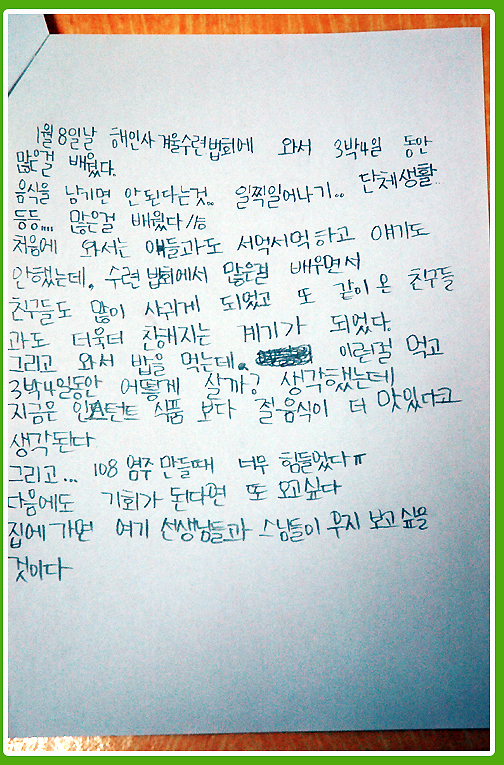 1월 8일날 해인사 겨울수련법회에 와서 3박4일 동안
많은걸 배웠다.
음식을 남기면 안된다는것.. 일찍일어나기.. 단체생활..
등등.... 많은걸 배웠다
처음에 와서는 애들과도 서먹서먹 하고 얘기도
안했는데. 수련법회에서 많은걸 배우면서
친구들도 많이 사귀게 되었고 또 같이 온 친구들
과도 더욱더 친해지는 계기가 되었다.
그리고 와서 밥을 먹는데. 이런걸 먹고
3박4일동안 어떻게 살까? 생각했는데
지금은 인스턴트 식품 보다 절음식이 더 맛있다고
생각된다
그리고... 108 염주 만들때 너무 힘들었다ㅠ
다음에도 기회가 된다면 또 오고싶다
집에 가면 여기 선생님들과 스님들이 무지 보고싶을
것이다